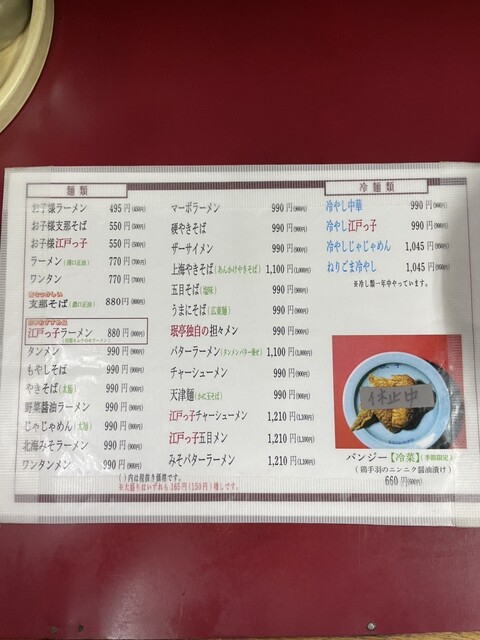 麺類
お子様ラーメン 495円(450円)
お子様支那そば 550円(500円)
お子様江戸っ子 550円(500円)
ラーメン(濃口正油) 770円(700円)
ワンタン 770円(700円)
支那そば(濃口正油) 880円(800円)
江戸っ子ラーメン 880円(800円)
タンメン 990円(900円)
もやしそば 990円(900円)
やきそば(太麺) 990円(900円)
野菜醤油ラーメン 990円(900円)
じゃじゃめん(太麺) 990円(900円)
北海みそラーメン 990円(900円)
ワンタンメン 990円(900円)
マーボラーメン 990円(900円)
硬やきそば 990円(900円)
ザーサイメン 990円(900円)
上海やきそば(あんかけやきそば) 1,100円(1,000円)
五目そば(塩味) 990円(900円)
うまにそば(広東麺) 990円(900円)
珉亭独自の担々メン 990円(900円)
バターラーメン(タンメンバター乗せ) 1,100円(1,000円)
チャーシューメン 990円(900円)
天津麺(かに玉そば) 990円(900円)
江戸っ子チャーシューメン 1,210円(1,100円)
江戸っ子五目メン 1,210円(1,100円)
みそバターラーメン 1,210円(1,100円)
( )内は税抜き価格です。
※大盛りはいずれも165円(150円)増しです。
冷麺類
冷やし中華 990円(900円)
冷やし江戸っ子 990円(900円)
冷やしじゃじゃめん 1,045円(950円)
ねりごま冷やし 1,045円(950円)
※冷し類一年中やっています。
休止中
バンジー【冷菜】(季節限定)
(鶏手羽のニンニク醤油漬け)
660円(600円)